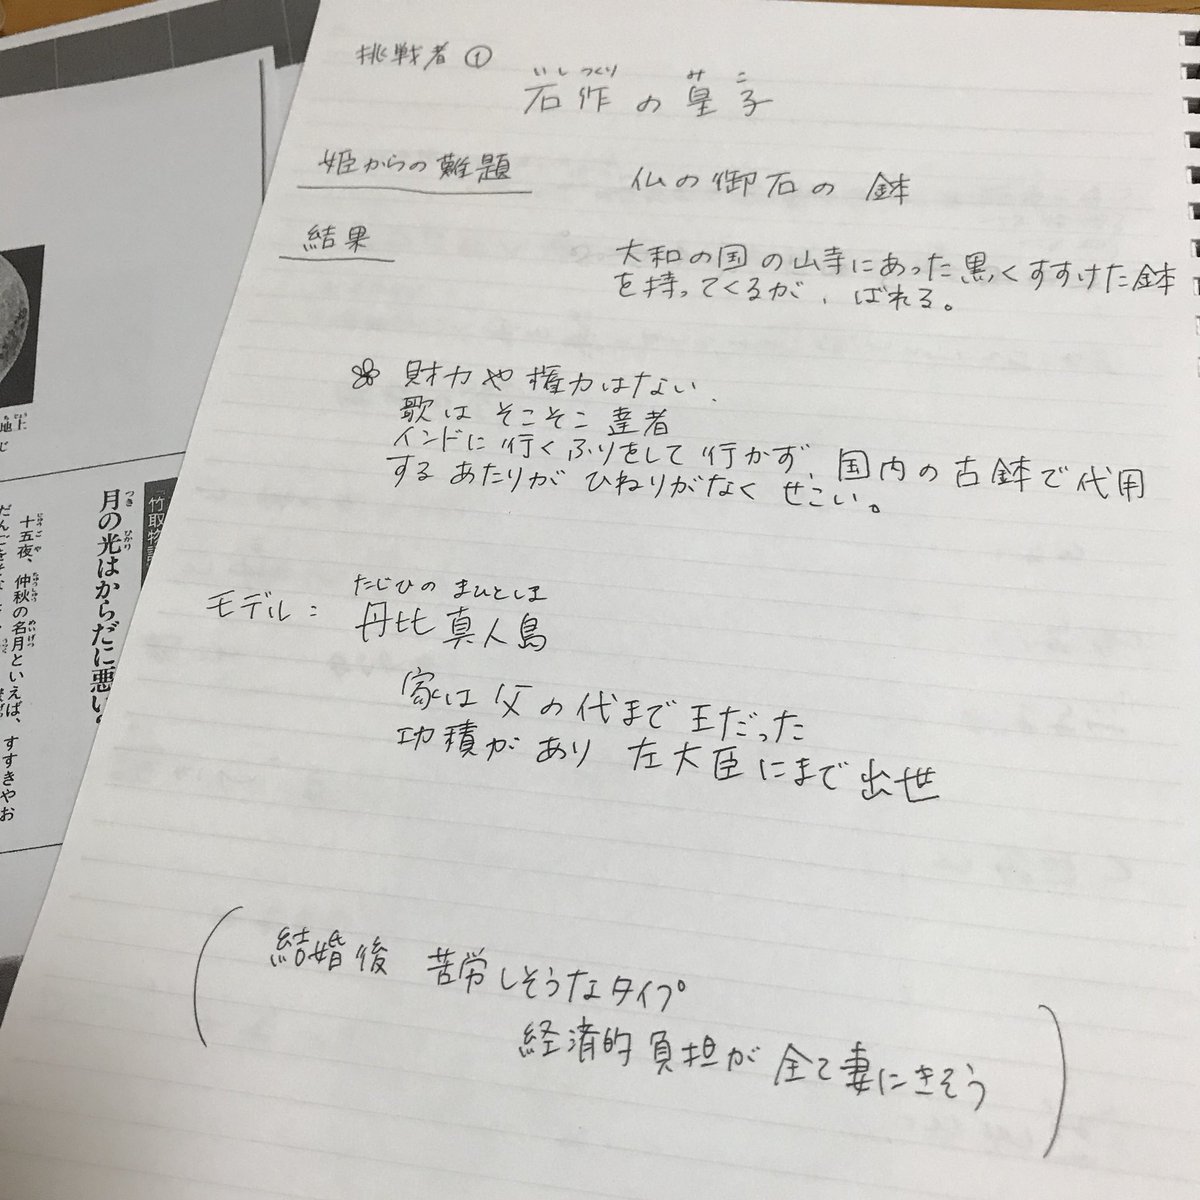 挑戦者①
いしつくり みこ
石作の皇子
姫からの難題
仏の御石の鉢
結果
大和の国の山寺にあった黒くすすけた鉢
を持ってくるが、ばれる。
財力や権力はない、
歌はそこそこ達者
インドに行くふりをして行かず、国内の古鉢で代用
するあたりがひねりがなくせこい。
たじひの まひとしま
モデル： 丹比真人島
家は父の代まで王だった
功積があり左大臣にまで出世
(結婚後 苦労しそうなタイプ
経済的負担が全て妻にきそう)
竹取物語
月の光はからだに悪い
つき ひかり
十五夜、仲秋の名月といえば、すすきやお
じゅうごや ちゅうしゅう めいげつ
地上
ちじょう
じ